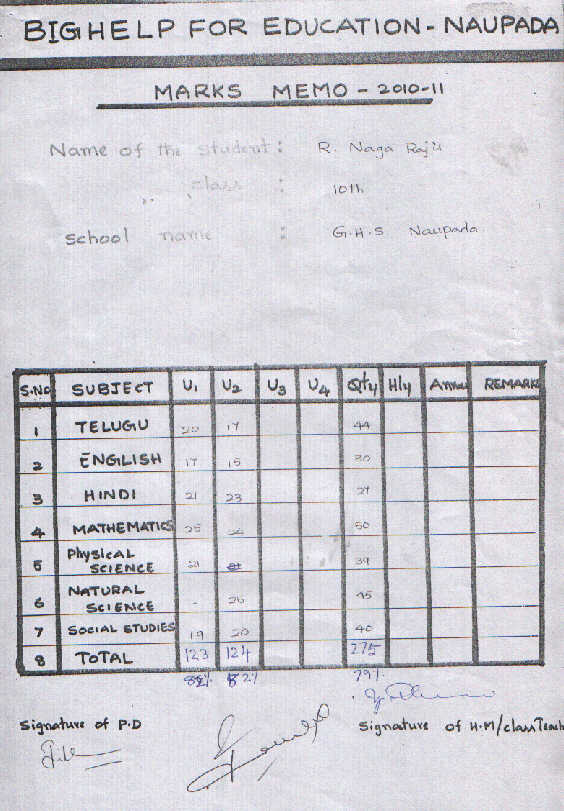 BIGHELP FOR EDUCATION - NAUPADA
MARKS MEMO - 2010-11
Name of the student : R. Naga Raju
class : 10th
School name : G.H.S Naupada
S.No SUBJECT U1 U2 U3 U4 Qty Hly Annu REMARK
1 TELUGU 20 17 44
2 ENGLISH 17 15 30
3 HINDI 21 23 27
4 MATHEMATICS 25 50
5 Physical SCIENCE 21 39
6 NATURAL SCIENCE - 26 45
7 SOCIAL STUDIES 19 20 40
8 TOTAL 123 124 275
82% 82% 79%
Signature of P.D Signature of H.M/class Teach